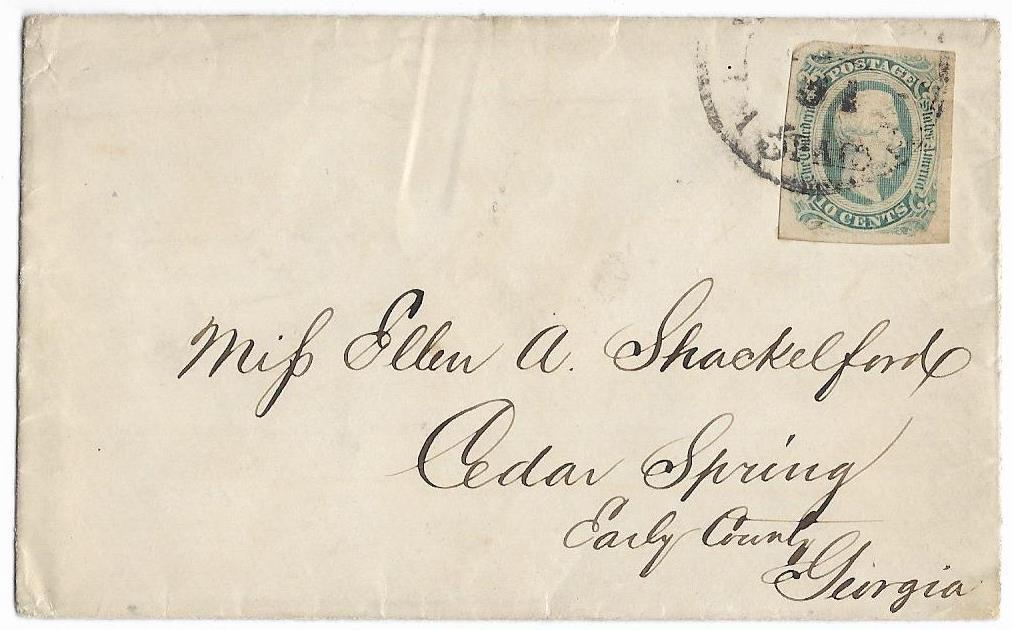 POSTAGE
The Confederate States of America
10 CENTS
Miſs Ellen A. Shackelford
Cedar Spring
Early County
Georgia